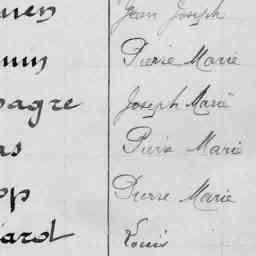 uen Jean Joseph
uin Pierre Marie
pagre Joseph Marie
as Pierre Marie
op Pierre Marie
arol Louis